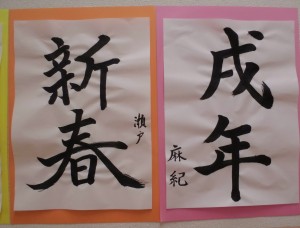 新春
瀬戸
戌年
麻紀